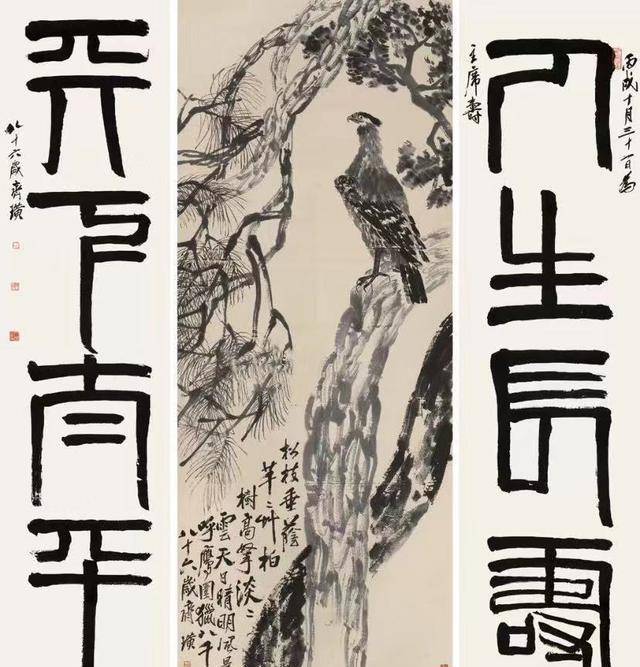 丙戌十月三十一日為
人生長壽
主席壽
松枝垂蔭
芊〻艸柏
樹高擎淡〻
雲天日晴明風
呼鷹圍獵八千
八十六歲齊璜
天下太平
八十六歲齊璜